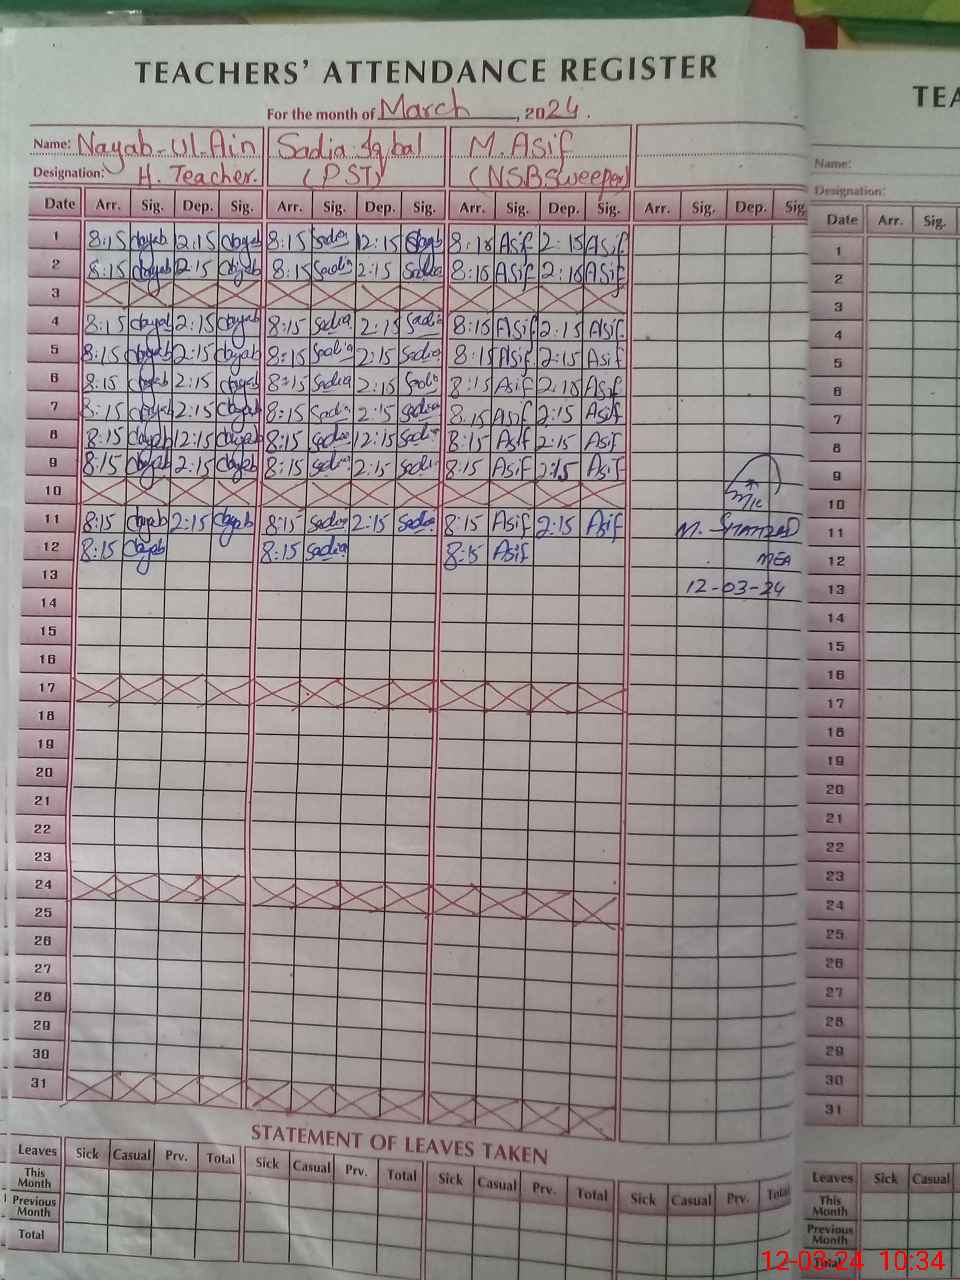 TEACHERS' ATTENDANCE REGISTER
For the month of March, 2024.
Name: Nayab-ul-Ain Sadia Iqbal M. Asif
Designation: H. Teacher. (PST) (NSB Sweeper)
Date Arr. Sig. Dep. Sig. Arr. Sig. Dep. Sig. Arr. Sig. Dep. Sig. Arr. Sig. Dep. Sig
1 8:15 2:15 8:15 Sadia 12:15 8:15 Asif 2:15 Asif
2 8:15 2:15 8:15 Sadia 2:15 Sadia 8:15 Asif 2:15 Asif
3
4 8:15 2:15 8:15 Sadia 2:15 Sadia 8:15 Asif 2:15 Asif
5 8:15 2:15 8:15 Sadia 2:15 Sadia 8:15 Asif 2:15 Asif
6 8:15 2:15 8:15 Sadia 2:15 Sadia 8:15 Asif 2:15 Asif
7 8:15 2:15 8:15 Sadia 2:15 Sadia 8:15 Asif 2:15 Asif
8 8:15 12:15 8:15 Sadia 12:15 Sadia 8:15 Asif 2:15 Asif
9 8:15 2:15 8:15 Sadia 2:15 Sadia 8:15 Asif 2:15 Asif
10
11 8:15 2:15 8:15 Sadia 2:15 Sadia 8:15 Asif 2:15 Asif M. SHAHZAD
12 8:15 8:15 Sadia 8:15 Asif MEA
13 12-03-24
14
15
16
17
18
19
20
21
22
23
24
25
26
27
28
29
30
31
STATEMENT OF LEAVES TAKEN
Leaves Sick Casual Prv. Total Sick Casual Prv. Total Sick Casual Prv. Total Sick Casual Prv. Total
This Month
Previous Month
Total
TEA
Name:
Designation:
Date Arr. Sig.
1
2
3
4
5
6
7
8
9
10
11
12
13
14
15
16
17
18
19
20
21
22
23
24
25
26
27
28
29
30
31
Leaves Sick Casual
This Month
Previous Month
Total
12-03-24 10:34